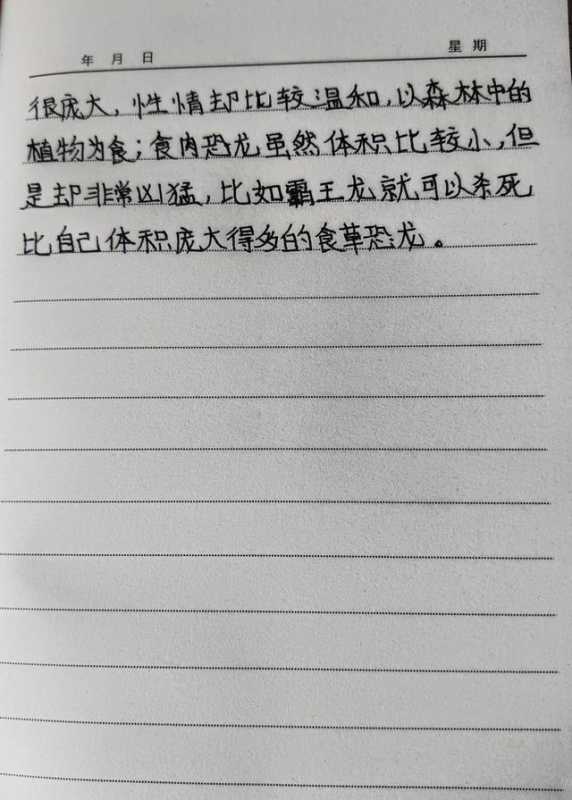 年 月 日 星 期
很庞大，性情却比较温和，以森林中的
植物为食；食肉恐龙虽然体积比较小，但
是却非常凶猛，比如霸王龙就可以杀死
比自己体积庞大得多的食草恐龙。